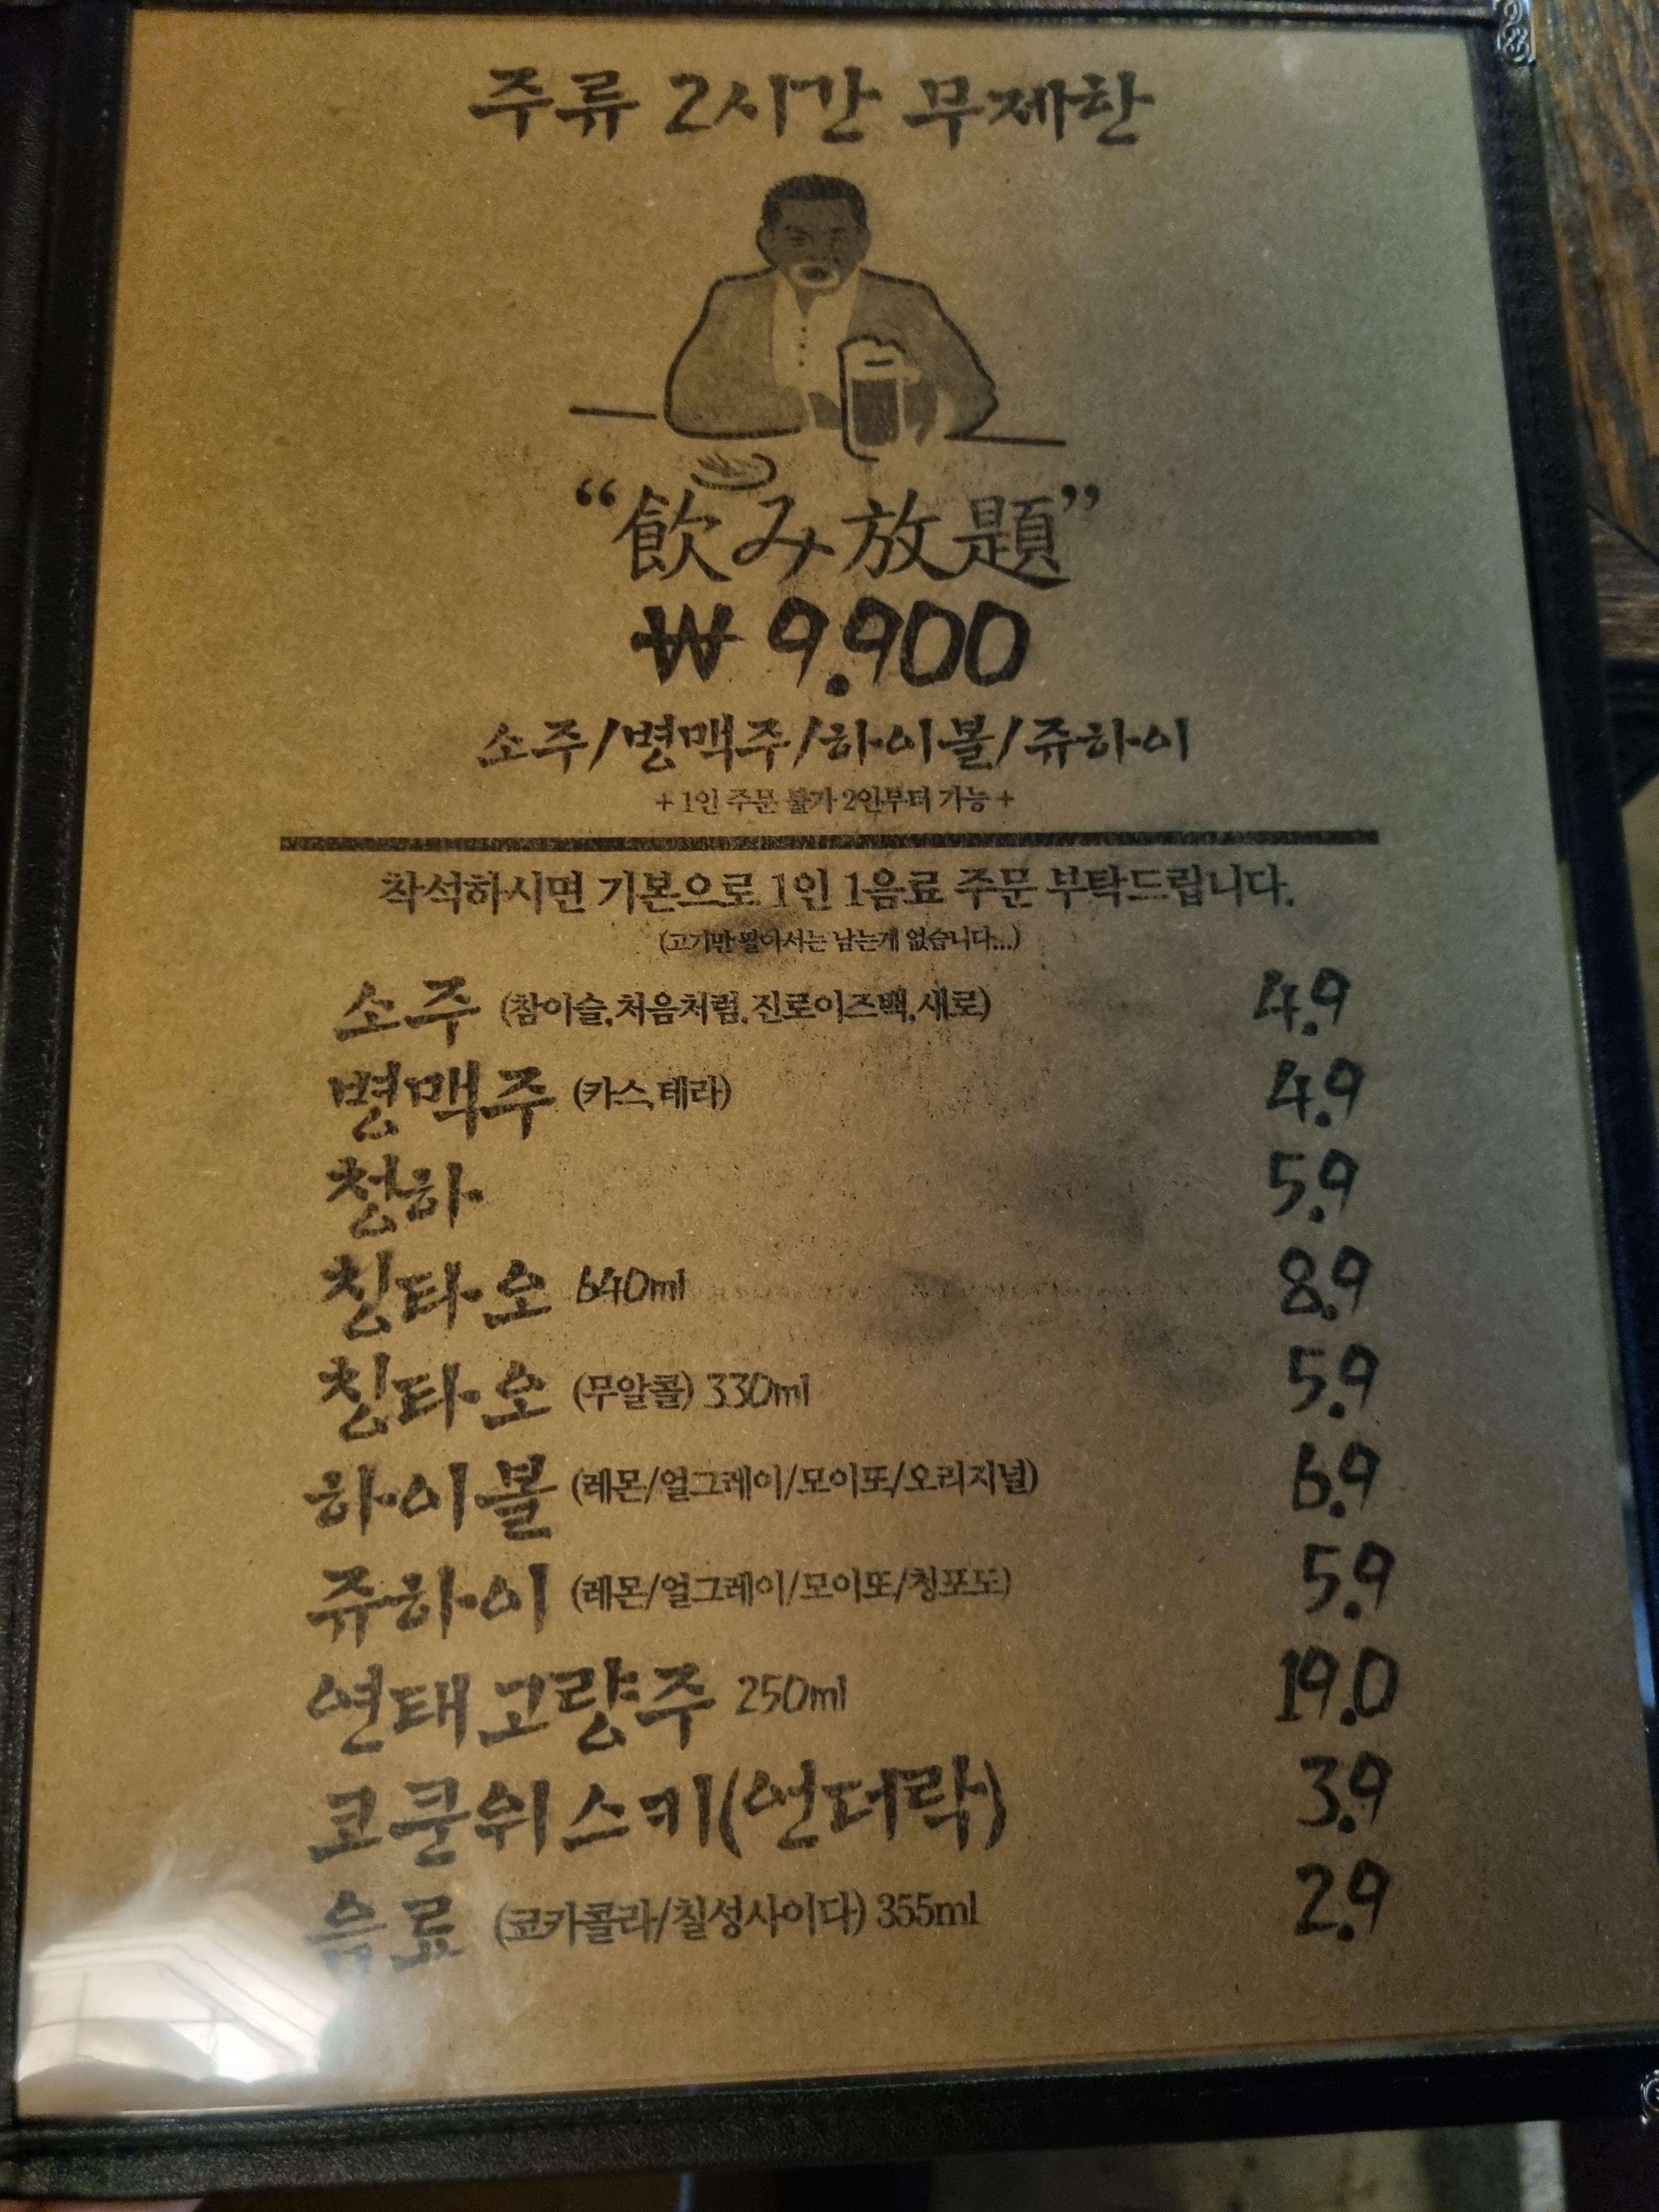 주류 2시간 무제한
“飲み放題”
₩ 9.900
소주/병맥주/하이볼/쥬하이
+ 1인 주문 불가 2인부터 가능 +
착석하시면 기본으로 1인 1음료 주문 부탁드립니다.
(고기만 팔아서는 남는게 없습니다...)
소주 (참이슬,처음처럼,진로이즈백,새로) 4.9
병맥주 (카스,테라) 4.9
청하 5.9
칭타오 640ml 8.9
칭타오 (무알콜) 330ml 5.9
하이볼 (레몬/얼그레이/모이또/오리지널) 6.9
쥬하이 (레몬/얼그레이/모이또/청포도) 5.9
연태고량주 250ml 19.0
코쿨위스키(언더락) 3.9
음료 (코카콜라/칠성사이다) 355ml 2.9